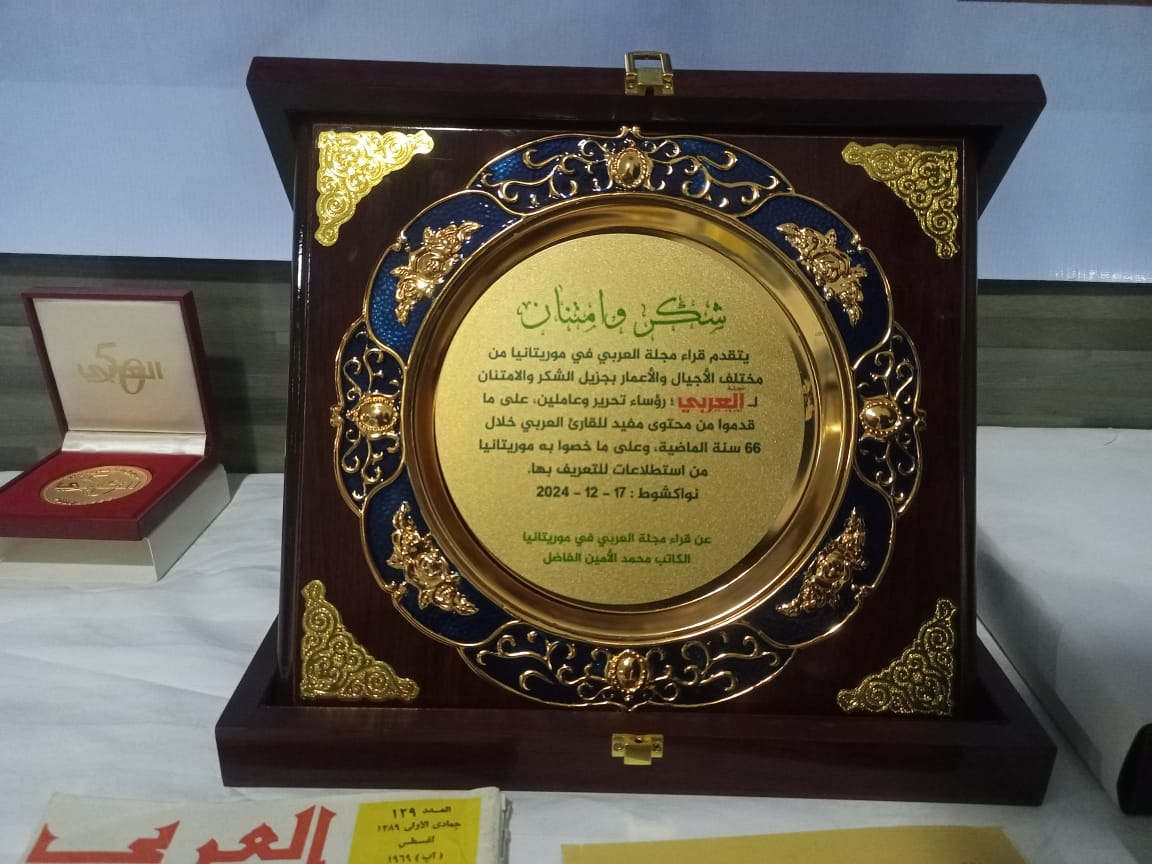 شكر وامتنان
يتقدم قراء مجلة العربي في موريتانيا من
مختلف الأجيال والأعمار بجزيل الشكر والامتنان
لـ مجلة العربي ؛ رؤساء تحرير وعاملين، على ما
قدموا من محتوى مفيد للقارئ العربي خلال
66 سنة الماضية، وعلى ما خصوا به موريتانيا
من استطلاعات للتعريف بها.
نواكشوط : 17 - 12 - 2024
عن قراء مجلة العربي في موريتانيا
الكاتب محمد الأمين الفاضل
العربي 50
العربي
العـدد ١٢٩
جمادى الأولى ١٣٨٩
اغسطس
( آب ) ١٩٦٩